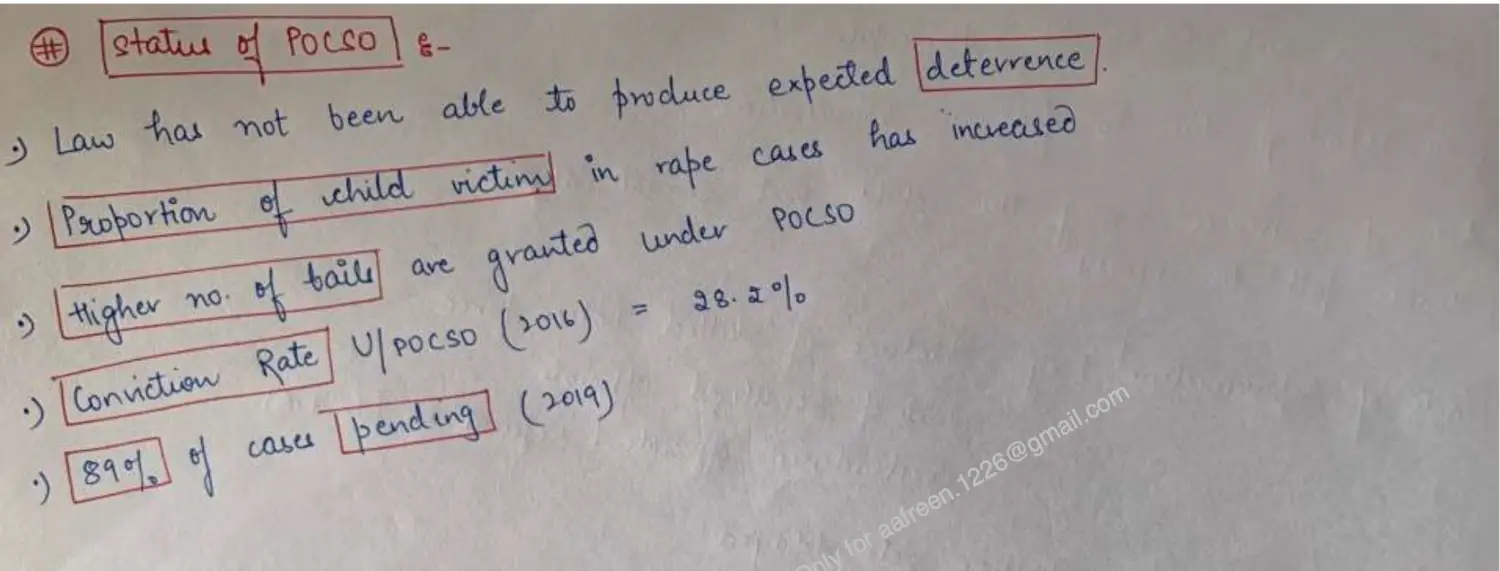 # Status of POCSO :-
•) Law has not been able to produce expected deterrence.
•) Proportion of child victims in rape cases has increased
•) Higher no. of bails are granted under POCSO
•) Conviction Rate U/POCSO (2016) = 28.2%
•) 89% of cases pending (2019)
Only for aafreen.1226@gmail.com